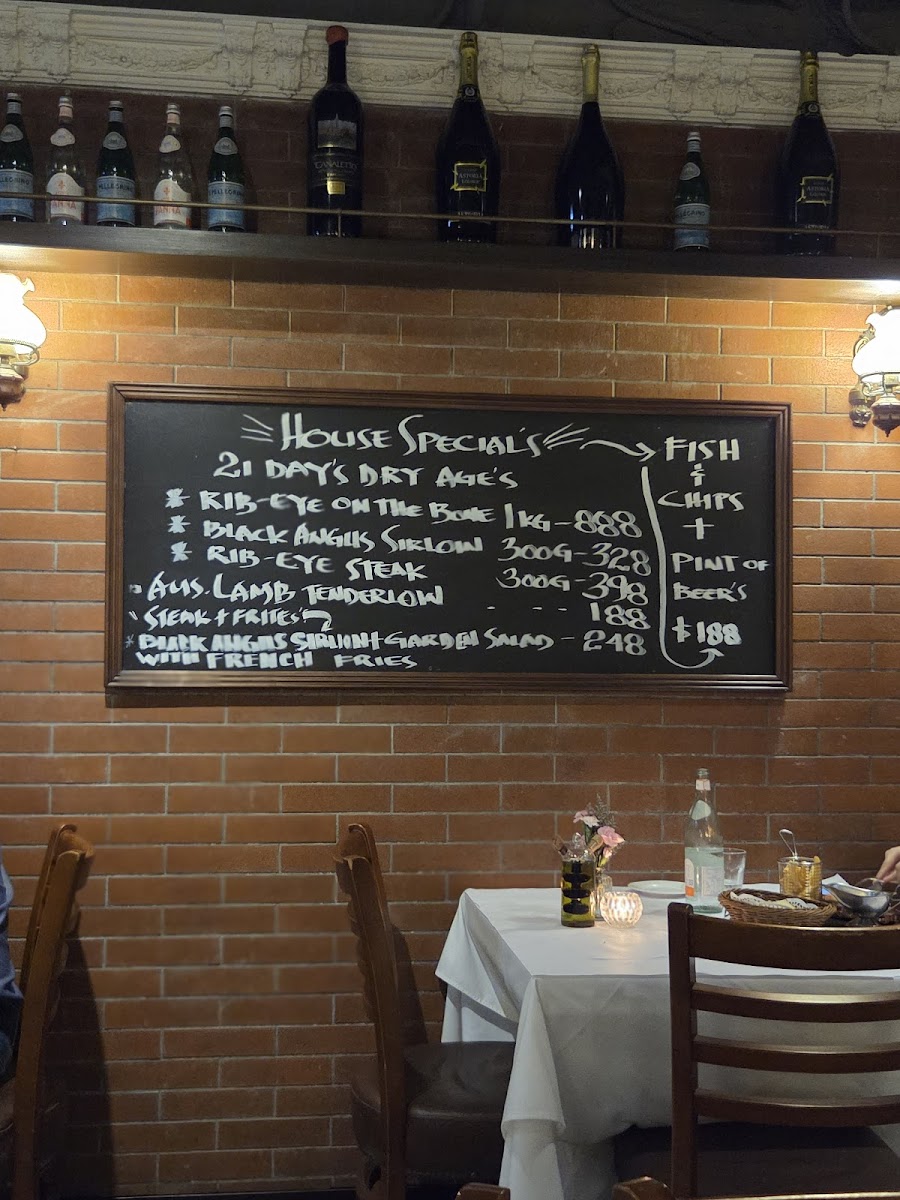 S.PELLEGRINO
PANNA
CANALETTO
ASTORIA
ASTORIA
HOUSE SPECIAL'S
21 DAY'S DRY AGE'S
* RIB-EYE ON THE BONE 1KG-888
* BLACK ANGUS SIRLOIN 300G-328
* RIB-EYE STEAK 300G-398
AUS. LAMB TENDERLOW - - - 188
STEAK + FRITES'
* BLACK ANGUS SIRLION + GARDEN SALAD - 248
WITH FRENCH FRIES
FISH
&
CHIPS
+
PINT OF
BEER'S
$188